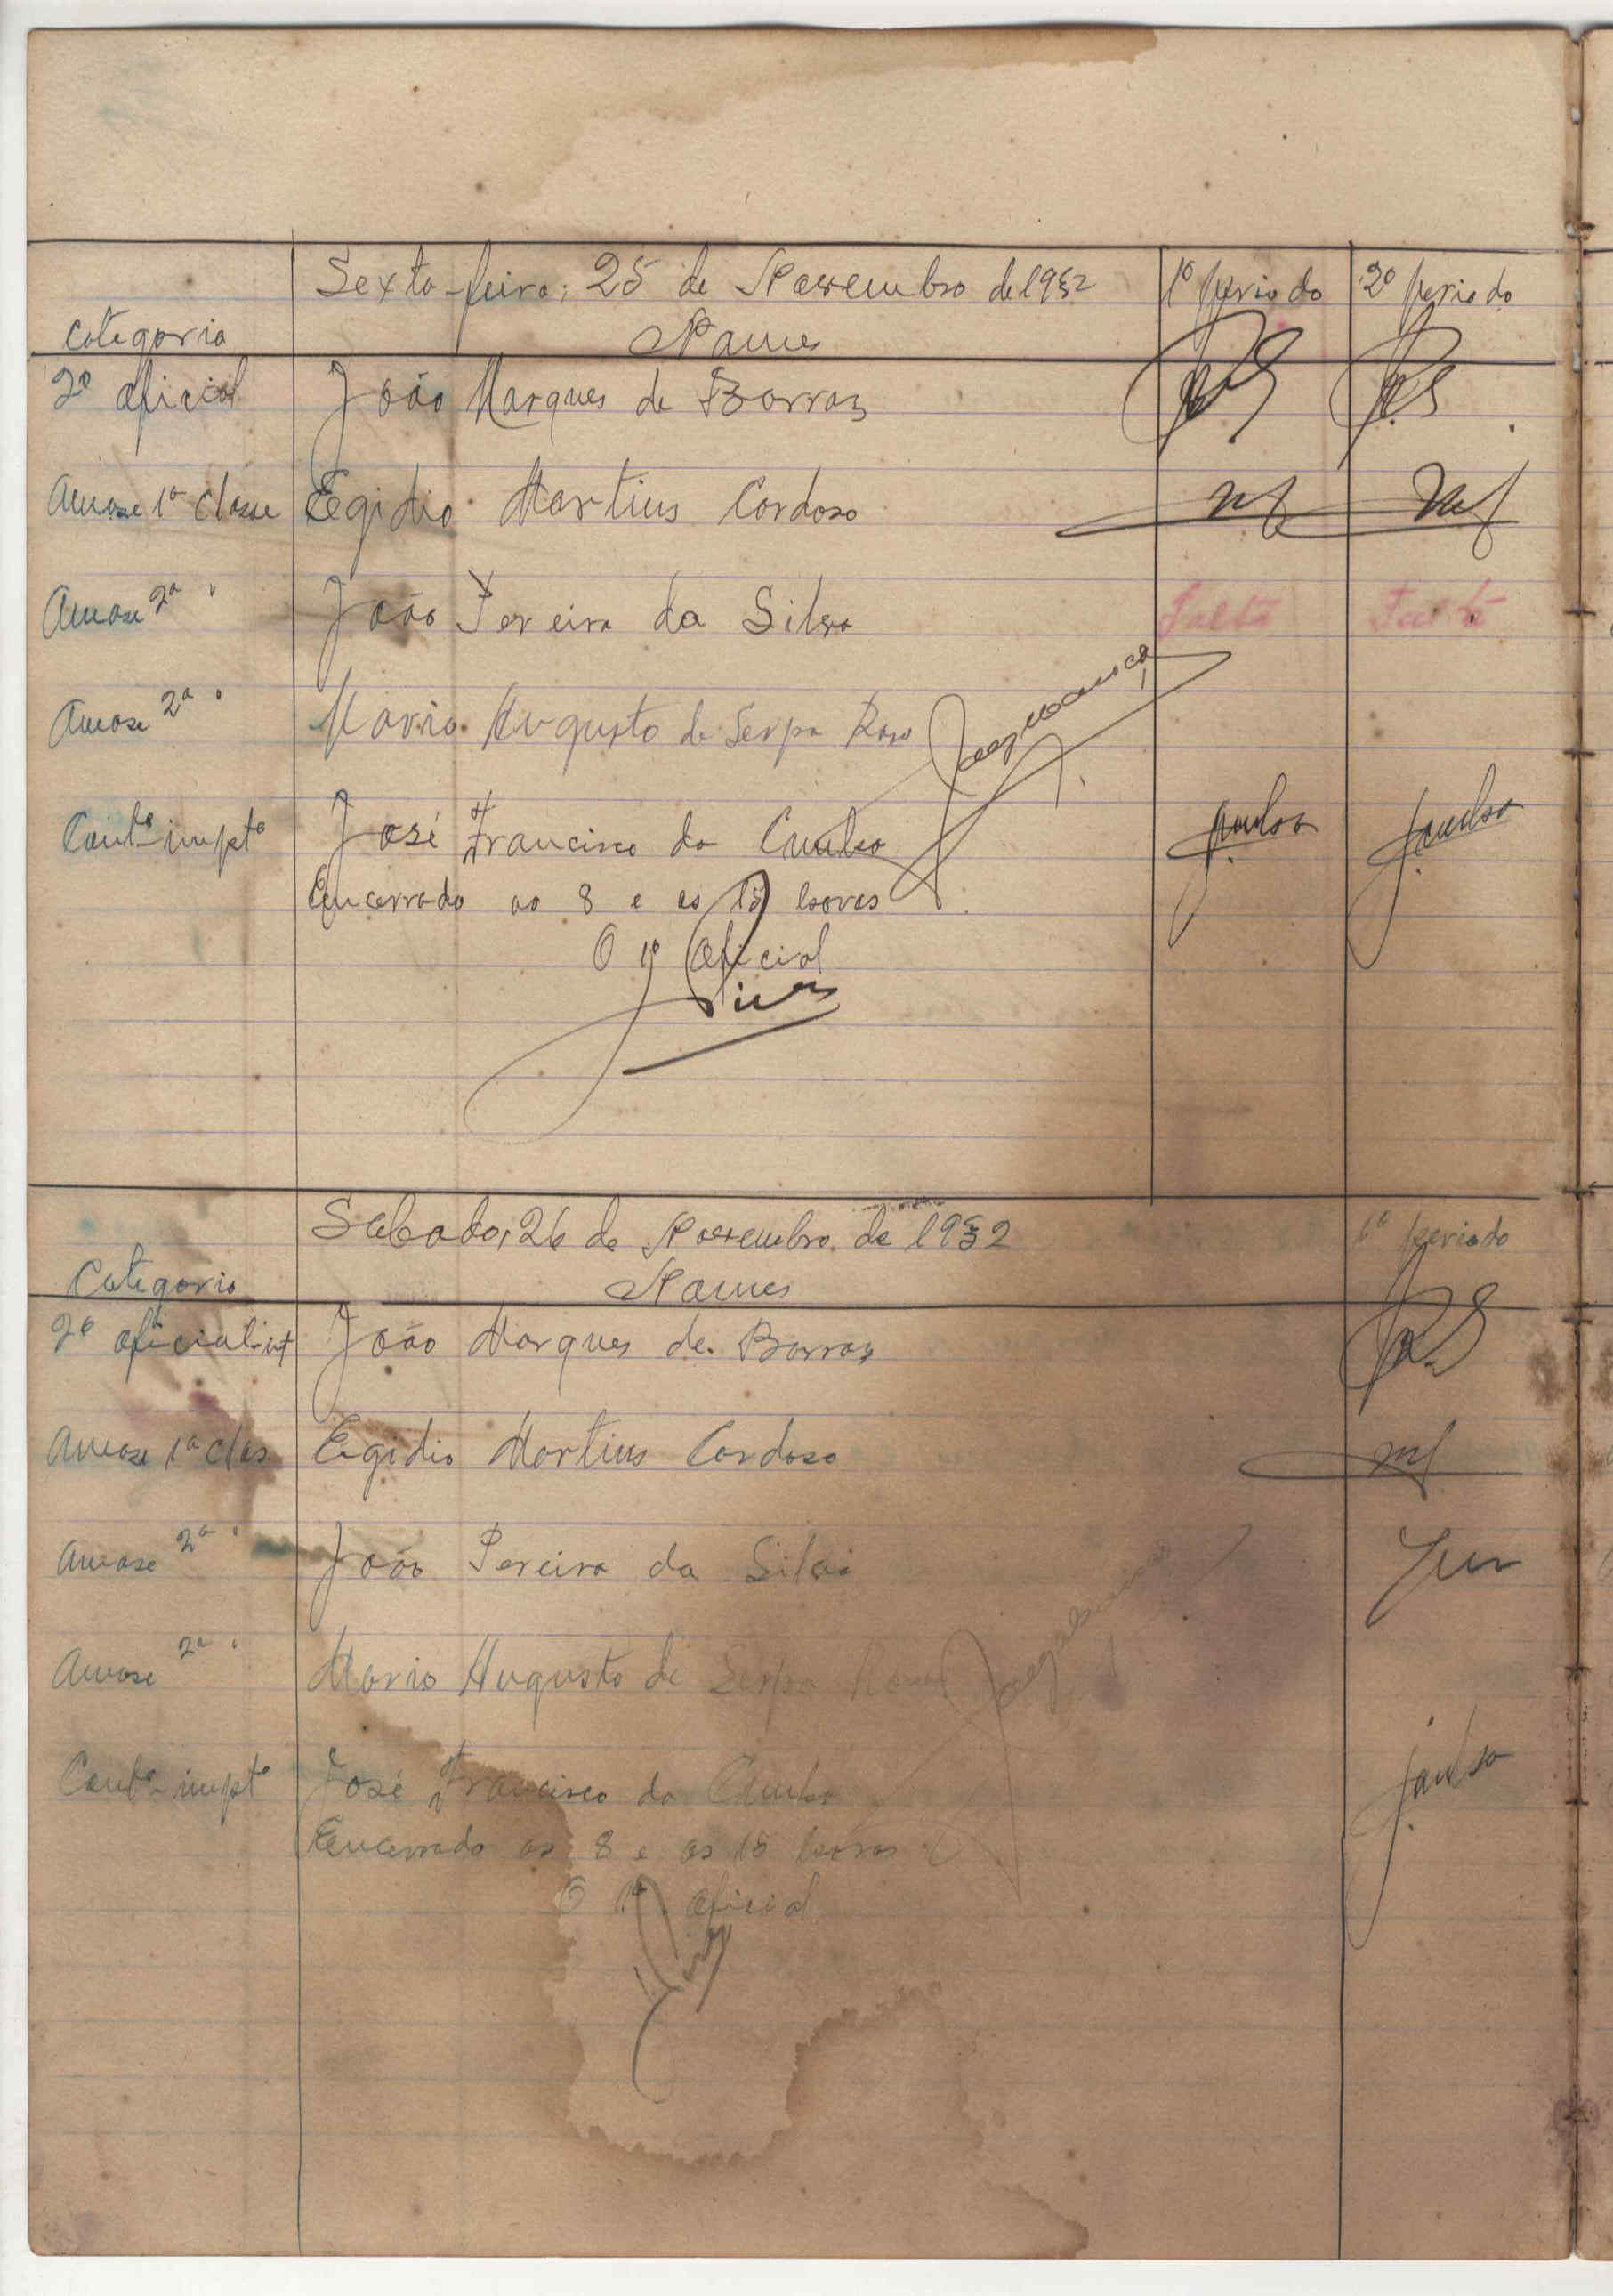 Sexta-feira, 25 de Novembro de 1932 1º periodo 2º periodo
Categoria Nomes
2º oficial João Marques de Barros
Amose 1ª Classe Egidio Martins Cardoso
Amose 2ª " João Pereira da Silva Falta Falta
Amose 2ª " Mario Augusto de Serpa Rosa
Contº impto José Francisco da Cunha
Encerrado as 8 e as 15 horas
O 1º Oficial
Sabado, 26 de Novembro de 1932 1º periodo
Categoria Nomes
2º oficial int João Marques de Barros
Amose 1ª clas. Egidio Martins Cardoso
Amose 2ª " João Pereira da Silva
Amose 2ª " Mario Augusto de Serpa Rosa
Contº impto José Francisco da Cunha
Encerrado as 8 e as 15 horas
O 1º Oficial